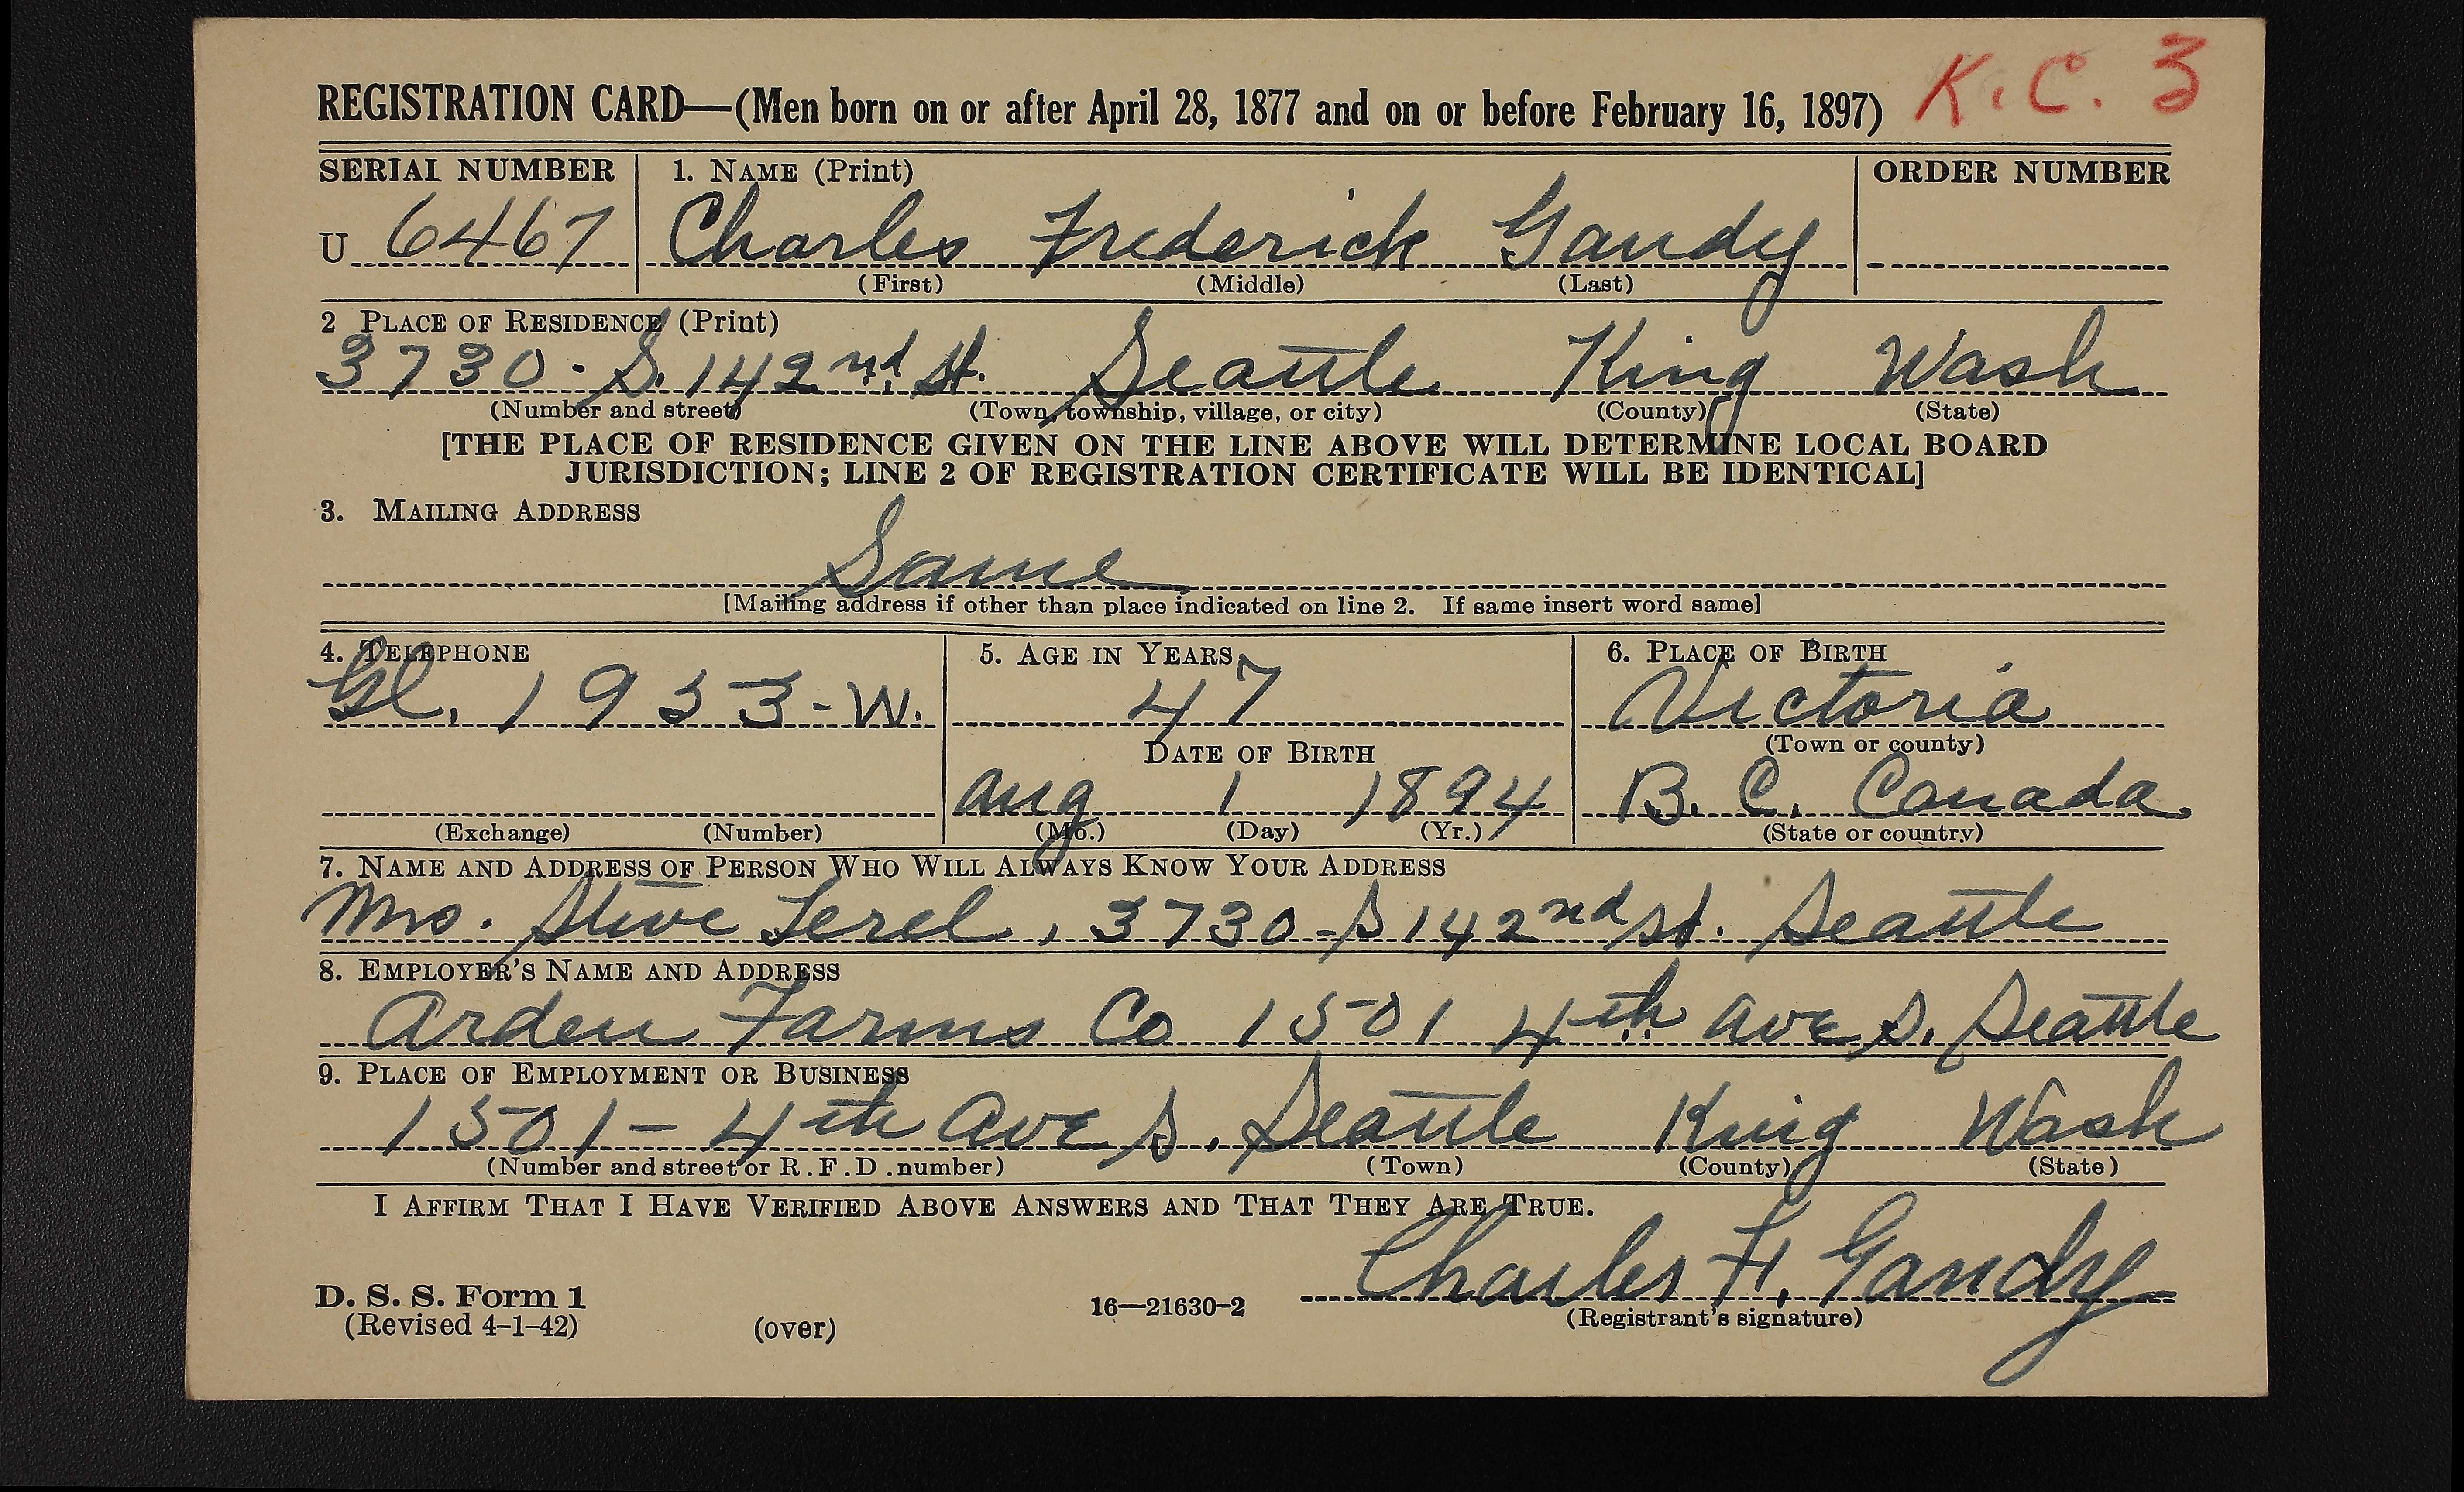 REGISTRATION CARD—(Men born on or after April 28, 1877 and on or before February 16, 1897) K.C. 3
SERIAL NUMBER 1. NAME (Print) ORDER NUMBER
U 6467 Charles Frederick Gandy
(First) (Middle) (Last)
2 PLACE OF RESIDENCE (Print)
3730 - S. 142nd St. Seattle King Wash
(Number and street) (Town, township, village, or city) (County) (State)
[THE PLACE OF RESIDENCE GIVEN ON THE LINE ABOVE WILL DETERMINE LOCAL BOARD
JURISDICTION; LINE 2 OF REGISTRATION CERTIFICATE WILL BE IDENTICAL]
3. MAILING ADDRESS
Same
[Mailing address if other than place indicated on line 2. If same insert word same]
4. TELEPHONE 5. AGE IN YEARS 6. PLACE OF BIRTH
Gl. 1953-W. 47 Victoria
(Town or county)
DATE OF BIRTH
Aug 1 1894 B. C. Canada
(Exchange) (Number) (Mo.) (Day) (Yr.) (State or country)
7. NAME AND ADDRESS OF PERSON WHO WILL ALWAYS KNOW YOUR ADDRESS
Mrs. Steve Terel, 3730 - S 142nd St. Seattle
8. EMPLOYER'S NAME AND ADDRESS
Arden Farms Co 1501 4th Ave S. Seattle
9. PLACE OF EMPLOYMENT OR BUSINESS
1501 - 4th Ave S. Seattle King Wash
(Number and street or R. F. D. number) (Town) (County) (State)
I AFFIRM THAT I HAVE VERIFIED ABOVE ANSWERS AND THAT THEY ARE TRUE.
Charles F. Gandy
D. S. S. Form 1 16—21630-2 (Registrant's signature)
(Revised 4-1-42) (over)